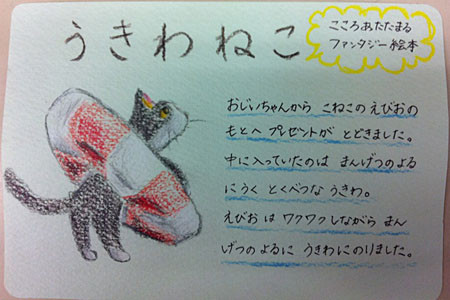 うきわねこ
こころあたたまる
ファンタジー絵本
おじいちゃんから こねこの えびおの
もとへ プレゼントが とどきました。
中に入っていたのは まんげつのよる
にうく とくべつな うきわ。
えびお は ワクワクしながら まん
げつのよるに うきわにのりました。